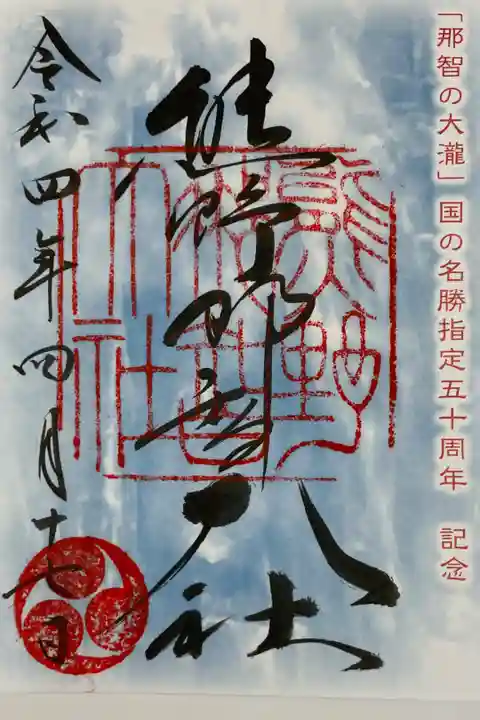 「那智の大瀧」国の名勝指定五十周年　記念
熊野那智大社
熊野
那智
大社
令和四年四月十七日